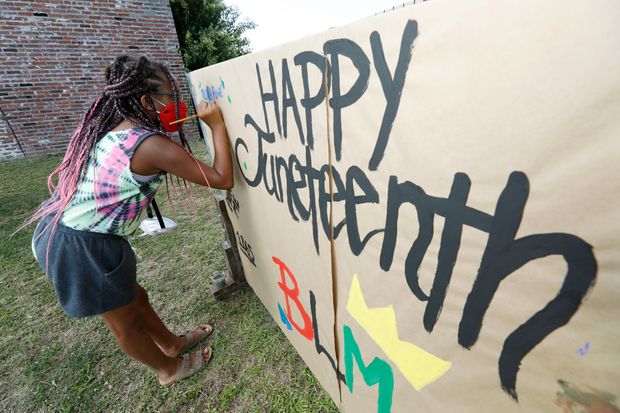 HAPPY
Juneteenth
BLM